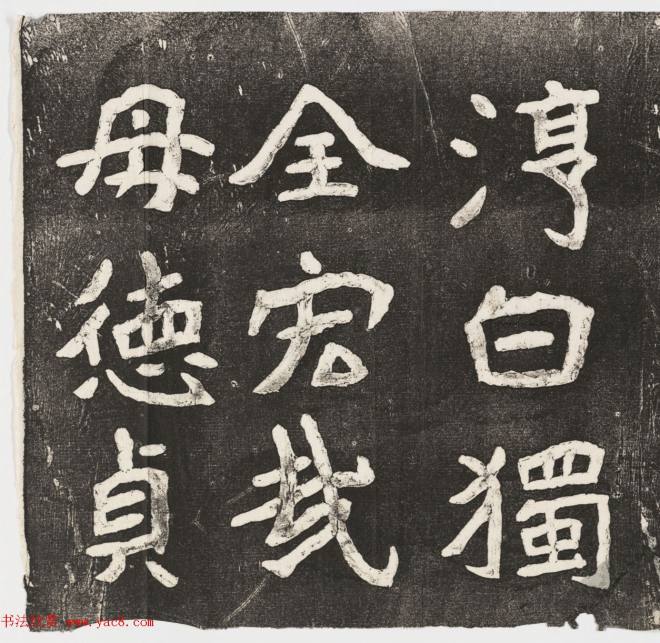 淳白獨
全宏哉
母德貞
书法欣赏 www.yac8.com